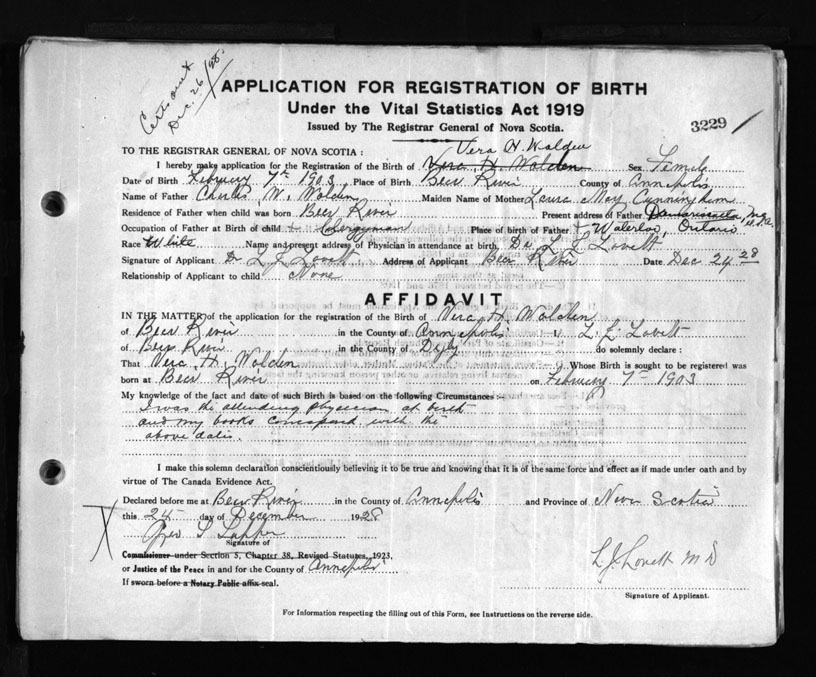 Cert. sent
Dec. 26/28.
APPLICATION FOR REGISTRATION OF BIRTH
Under the Vital Statistics Act 1919
Issued by The Registrar General of Nova Scotia.
3229
Vera H. Walden
TO THE REGISTRAR GENERAL OF NOVA SCOTIA:
I hereby make application for the Registration of the Birth of Vera H. Walden Sex Female
Date of Birth February 7th 1903 Place of Birth Bear River County of Annapolis
Name of Father Charles W. Walden Maiden Name of Mother Laura May Cunningham
Residence of Father when child was born Bear River Present address of Father Damariscotta, Me. U.S.A.
Occupation of Father at Birth of child Clergyman Place of birth of Father Waterloo, Ontario
Race White Name and present address of Physician in attendance at birth, Dr. L. J. Lovett
Signature of Applicant Dr L. J. Lovett Address of Applicant Bear River Date Dec 24 28
Relationship of Applicant to child None
AFFIDAVIT
IN THE MATTER of the application for the registration of the Birth of Vera H. Walden
of Bear River in the County of Annapolis I/ L. J. Lovett
of Bear River in the County of Digby do solemnly declare:
That Vera H. Walden Whose Birth is sought to be registered was
born at Bear River on February 7th 1903
My knowledge of the fact and date of such Birth is based on the following Circumstances:-
I was the attending physician at birth
and my books correspond with the
above dates.
I make this solemn declaration conscientiously believing it to be true and knowing that it is of the same force and effect as if made under oath and by
virtue of The Canada Evidence Act.
Declared before me at Bear River in the County of Annapolis and Province of Nova Scotia
this 24 day of December 1928
X
Signature of
Commissioner under Section 5, Chapter 38, Revised Statutes, 1923,
or Justice of the Peace in and for the County of Annapolis
L. J. Lovett M D
If sworn before a Notary Public affix seal.
Signature of Applicant.
For Information respecting the filling out of this Form, see Instructions on the reverse side.